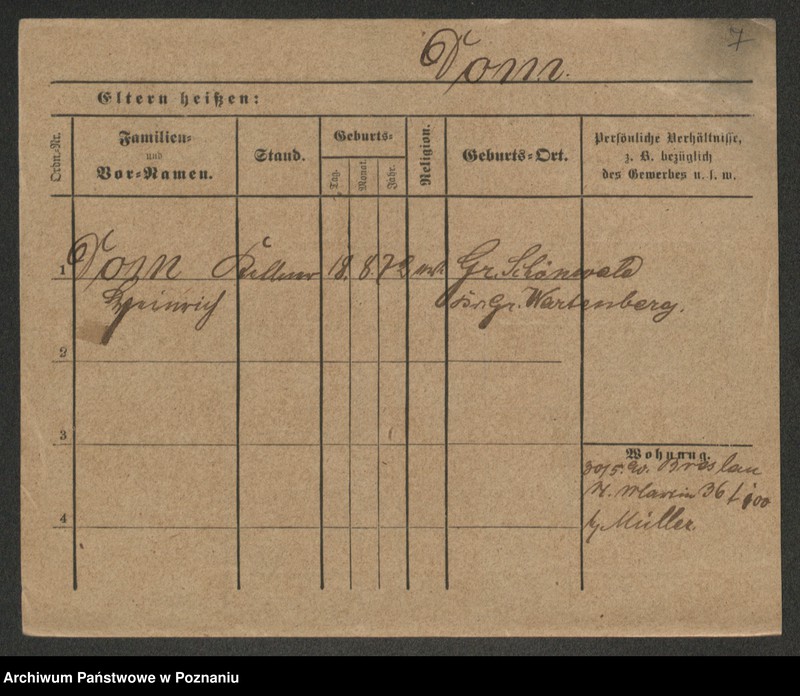 7
Dom.
Eltern heißen:
Ordn.-Nr.
Familien-
und
Vor-Namen.
Stand.
Geburts-
Tag.
Monat.
Jahr.
Religion.
Geburts-Ort.
Persönliche Verhältnisse,
z. B. bezüglich
des Gewerbes u. s. w.
1 Dom Kellner 18. 8. 72 Gr. Schönwald
Heinrich Gr. Wartenberg.
2
3
4
Wohnung.
30/5. Breslau
St. Martin 36
Müller.
Archiwum Państwowe w Poznaniu